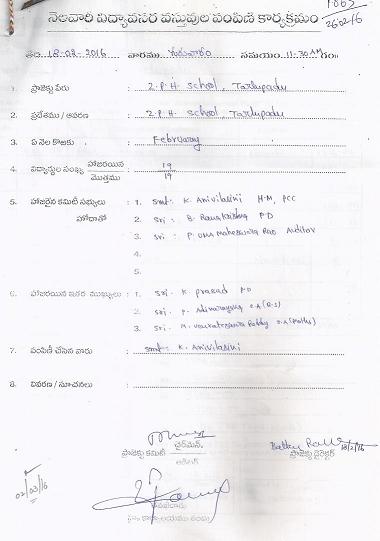 నెలవారి విద్యావసర వస్తువుల పంపిణీ కార్యక్రమం
తేది. 18-02-2016 వారము గురువారం సమయం 11-30 AM గం॥
1. ప్రాజెక్టు పేరు : Z.P.H. School, Tarlupadu
2. ప్రదేశము / ఆవరణ : Z.P.H. School, Tarlupadu
3. ఏ నెల కొఱకు : February
4. విద్యార్థుల సంఖ్య హాజరయిన / మొత్తము : 19 / 19
5. హాజరైన కమిటీ సభ్యులు : 1. Smt. K. Anivilasini H.M, PCC
హోదాతో 2. Sri. B. Ramakrishna P.D
3. Sri. P. Uma Maheswara Rao Auditor
4.
5.
6. హాజరయిన ఇతర ముఖ్యులు : 1. Sri. K. Prasad P.D
2. Sri. P. Adinarayana S.A (B.S)
3. Sri. M. Venkateswara Reddy S.A (Maths)
7. పంపిణీ చేసిన వారు : Smt. K. Anivilasini
8. వివరణ / సూచనలు :
18/2/16
ప్రాజెక్టు కమిటీ చైర్మెన్. ప్రాజెక్టు డైరెక్టర్
ఆడిటర్
02/03/16